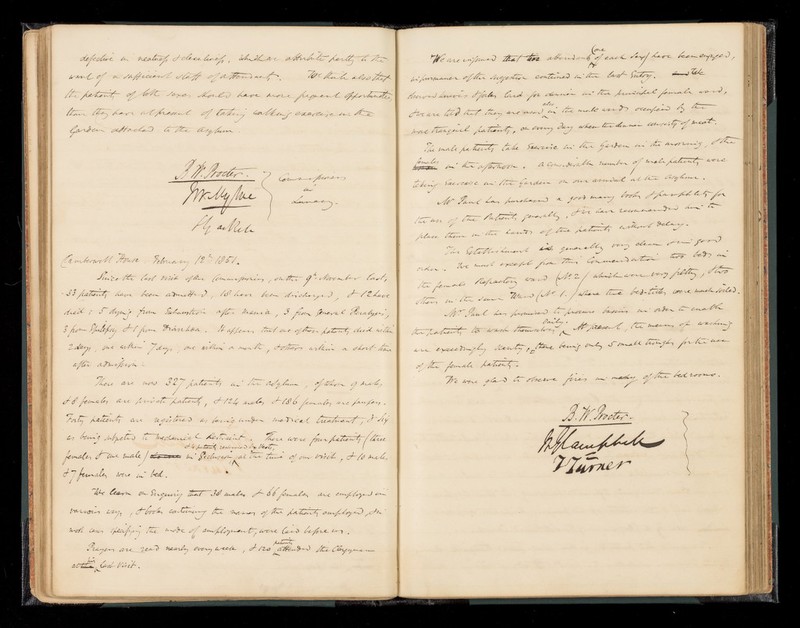 defective in neatness & cleanliness, which we attribute partly to the
want of a sufficient staff of attendants. We think also that
the patients of both sexes should have more frequent opportunities
than they have at present of taking walking exercise in the
Garden attached to the Asylum.
B. W. Procter.
Commissioners
in
Lunacy.
Camberwell House. February 12th 1851.
Since the last visit of the Commissioners, on the 9th December last,
33 patients have been admitted, 15 have been discharged, & 12 have
died: 5 dying from Exhaustion after Mania, 3 from General Paralysis,
3 from Epilepsy & 1 from Diarrhoea. It appears that one of these patients died within
2 days, one within 7 days, one within a month, & others within a short time
after admission.
There are now 327 patients in the Asylum, of whom 9 males
& 8 females are private patients, & 124 males & 186 females are paupers.
Forty patients are registered as being under medical treatment, & six
as being subjected to mechanical Restraint. There were four patients (three
females & one male) in Seclusion at the time of our visit, & 10 males
& 7 females were in bed.
We learn on Enquiry that 36 males & 66 females are employed in
various ways, & books containing the names of the patients employed, &
specifying the mode of employment, were laid before us.
Prayers are read nearly every week, & 120 patients attended the Clergyman
at his last visit.
We are informed that two attendants (one of each Sex) have been engaged,
in pursuance of the suggestion contained in the last Entry. We
found knives & forks laid for dinner in the principal female ward,
& we are told that they are used also in the male wards occupied by the
most tranquil patients, on every day when the dinner consists of meat.
The male patients take Exercise in the Garden in the morning, & the
females in the afternoon. A considerable number of male patients were
taking Exercise in the Garden on our arrival at the Asylum.
Mr Paul has purchased a good many books & pamphlets for
the use of the Patients generally, & we have recommended him to
place them in the hands of the patients without delay.
The Establishment is generally very clean & in good
order. We must except from this Commendation two beds in
the female Refractory ward (No 2) which were very filthy, & two
others in the same Ward (No 1.) where the bed-ticks were much soiled.
Mr Paul has promised to procure basins in order to enable
the patients to wash themselves daily. At present, the means of washing
are exceedingly scanty, there being only 5 small troughs for the use
of the female patients.
We were glad to observe fires in many of the bedrooms.
B. W. Procter.
Campbell
T Turner